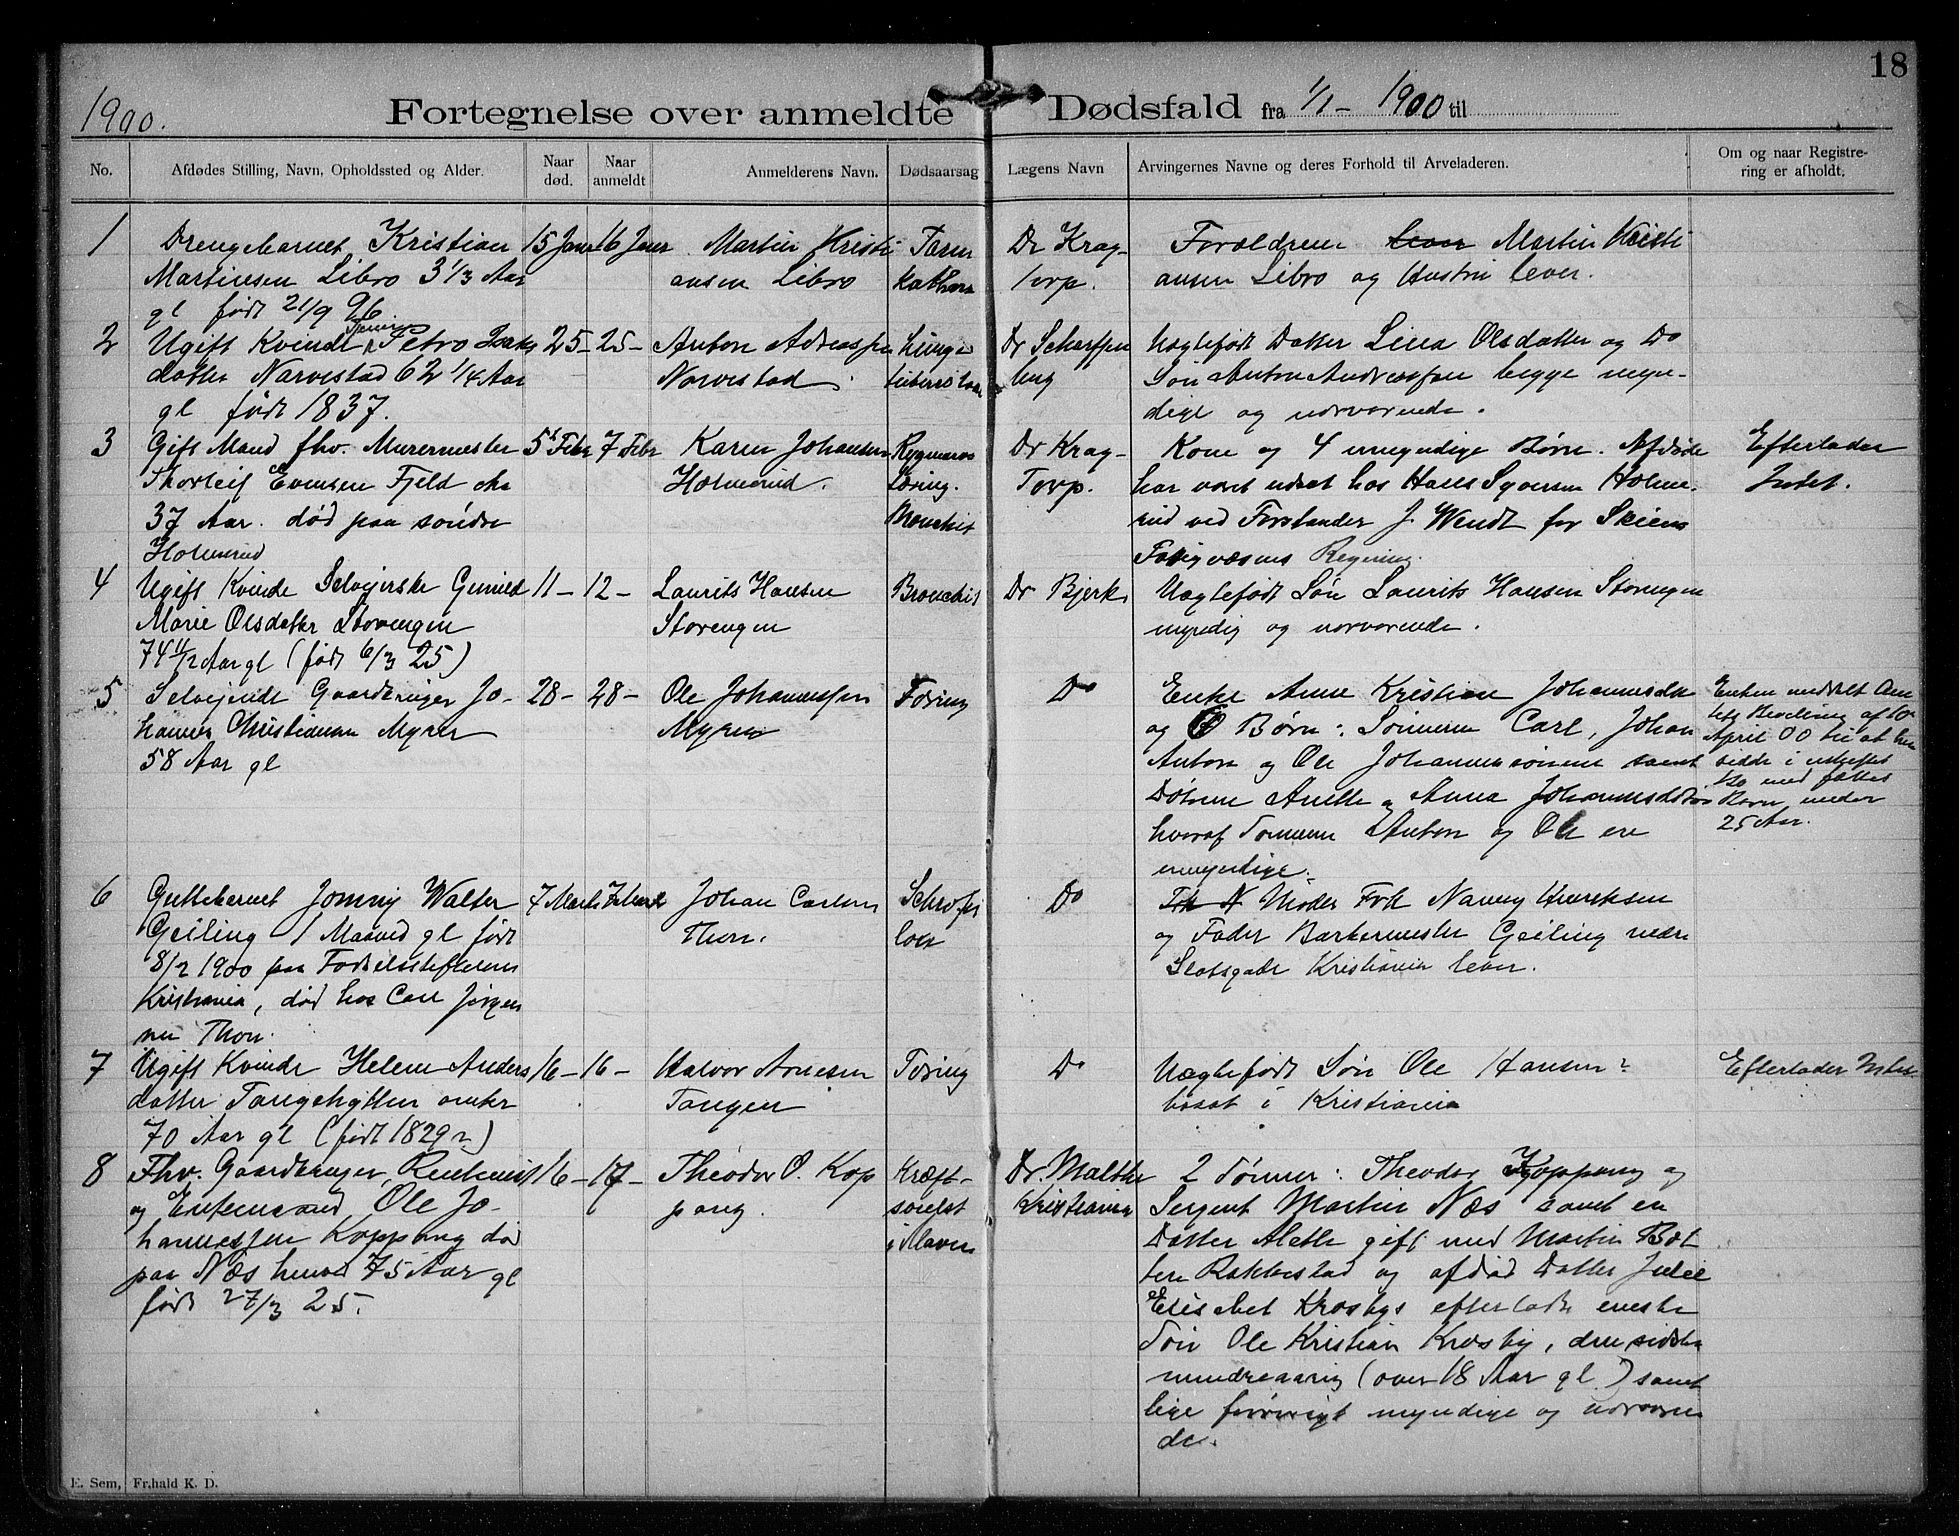 18
1900.
Fortegnelse over anmeldte Dødsfald fra 1/1 - 1900 til
No.
Afdødes Stilling, Navn, Opholdssted og Alder.
Naar død.
Naar anmeldt
Anmelderens Navn.
Dødsaarsag
Lægens Navn
Arvingernes Navne og deres Forhold til Arveladeren.
Om og naar Registre-
ring er afholdt.
1
Drengebarnet Kristian
Martinsen Libro 3 1/3 Aar
gl født 21/9 96.
15 Janr
16 Janr
Martin Kristi
ansen Libro
Tarm
katharr
Dr Krag-
Torp.
Forældrene Martin Kristi
ansen Libro og Hustru lever.
2
Ugift Kvinde Petro Isaks
datter Narvestad 62 1/4 Aar
gl født 1837.
25 -
25 -
Anton Andreassen
Narvestad
Lunge
tuberculose
Dr Scharffen
berg
Uægtefødt Datter Lina Olsdatter og Do
Søn Anton Andreassen begge myn-
dige og nærværende.
3
Gift Mand fhv. Murermester
Thorleif Evensen Fjeld ca
37 Aar. død paa søndre
Holmerud
5t Febr
7 Febr
Karen Johansen
Holmerud.
Rygmarvs
tæring.
Bronchit
Dr Krag-
Torp.
Kone og 4 umyndige Børn. Afdøde
har været udsat hos Hans Syversen Holme-
rud ved Forstander J. Wendt for Skiens
Fattigvæsens Regning.
Efterlader
Intet.
4
Ugift Kvinde Selvejerske Gunild
Marie Olsdatter Storengen
74 11/12 Aar gl (født 6/3 25)
11 -
12 -
Laurits Hansen
Storengen
Bronchit
Dr Bjerke
Uægtefødt Søn Laurits Hansen Storengen
myndig og nærværende.
5
Selvejende Gaardbruger Jo-
hannes Christiansen Myrer
58 Aar gl
28 -
28 -
Ole Johannessen
Myren
Tæring
Do
Enke Anne Kristine Johannesdtr
og Børn: Sønnerne Carl, Johan
Anton og Ole Johannessønner samt
Døtrene Anette og Anna Johannesdøtre
hvoraf Sønnerne Anton og Ole ere
umyndige.
Enken meddelt Am
tets Bevilling af 10
April 00 til at hen
sidde i uskiftet
Bo med fælles
Børn under
25 Aar.
6
Guttebarnet Jonny Walter
Geiling 1 Maaned gl født
8/2 1900 paa Fødselsstiftelsen
Kristiania, død hos Carl Jørgen
sen Thon.
7 Marts
7 Marts
Johan Carlsen
Thon.
Schrofu
lose
Do
Moder Frk Nanny Henriksen
og Fader Barbermester Geiling nedre
Slotsgade Kristiania lever.
7
Ugift Kvinde Helene Anders
datter Tangehytten omkr
70 Aar gl (født 1829?)
16 -
16 -
Halvor Arnesen
Tangen
Tæring
Do
Uægtefødt Søn Ole Hansen?
bosat i Kristiania
Efterlader Intet
8
Fhv. Gaardbruger, Rentenist
og Enkemand Ole Jo-
hannessen Koppang død
paa Næs henved 75 Aar gl
født 27/3 25.
16 -
17 -
Theodor O. Kop
pang.
Kræft-
svulst
i Maven
Dr. Malthe
Kristiania
2 Sønner: Theodor Koppang og
Sergent Martin Næs samt en
Datter Alette gift med Martin Bot
Rakkestad og afdød Datter Julie
Elisabet Krosbys efterladte eneste
Søn Ole Kristian Krosby, den sidste
mindreaarig (over 18 Aar gl.) samt
lige forøvrigt myndige og nærværen
de.
E. Sem, Fr.hald K. D.